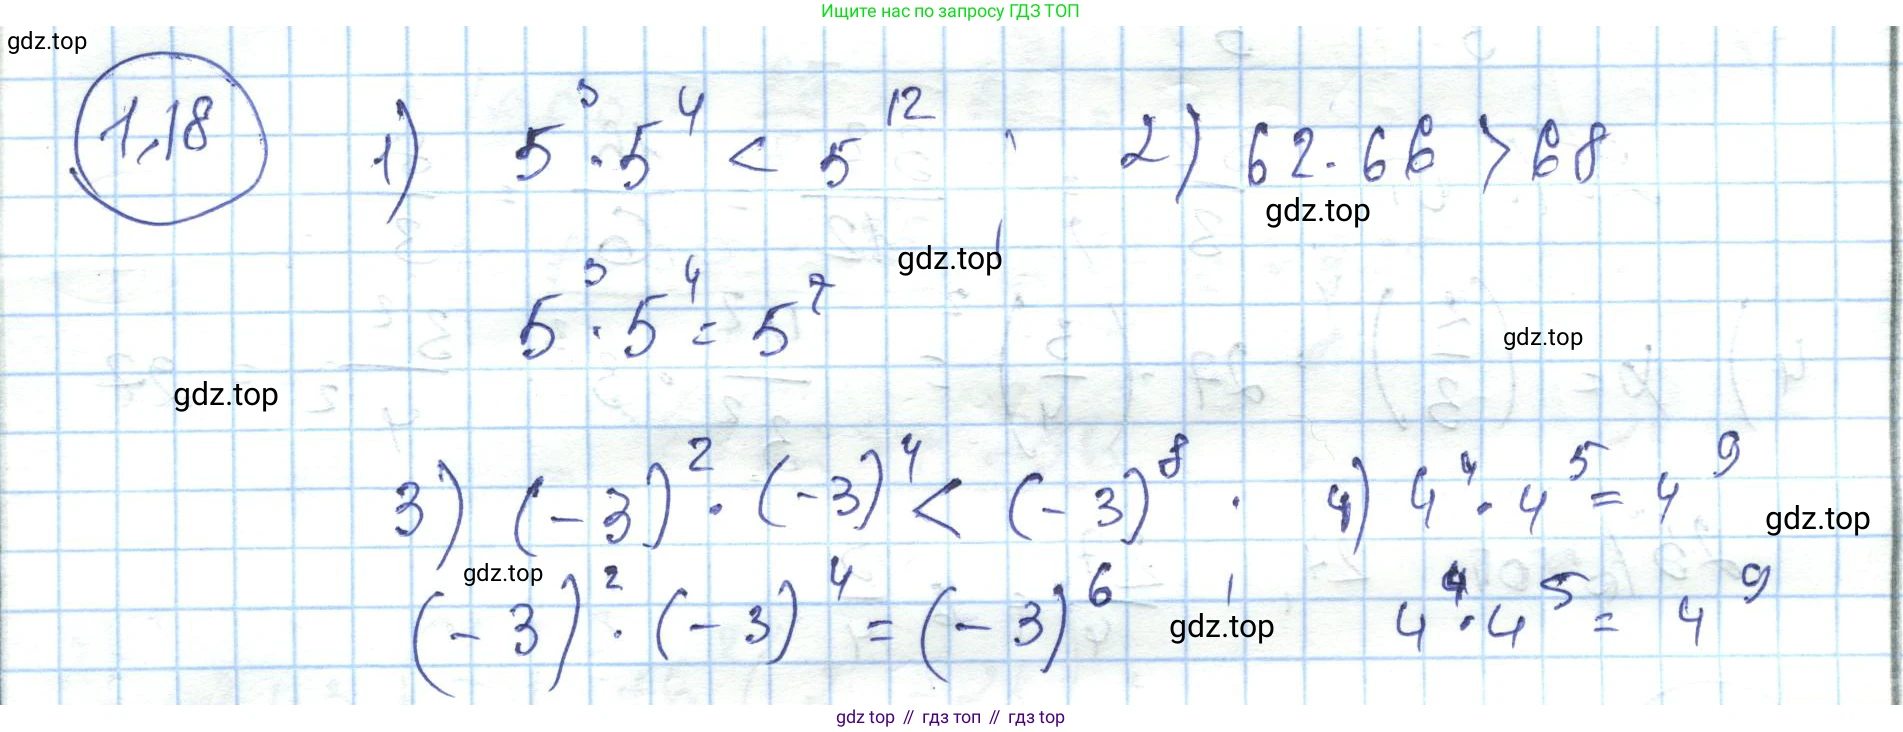 Ищите нас по запросу ГДЗ ТОП
gdz.top
1,18
1) 5³ · 5⁴ < 5¹²
2) 62 · 66 > 68
gdz.top
gdz.top
5³ · 5⁴ = 5⁷
gdz.top
gdz.top
3) (-3)² · (-3)⁴ < (-3)⁸
4) 4⁴ · 4⁵ = 4⁹
gdz.top
gdz.top
(-3)² · (-3)⁴ = (-3)⁶
4⁴ · 4⁵ = 4⁹
gdz.top
gdz top // гдз топ // гдз top